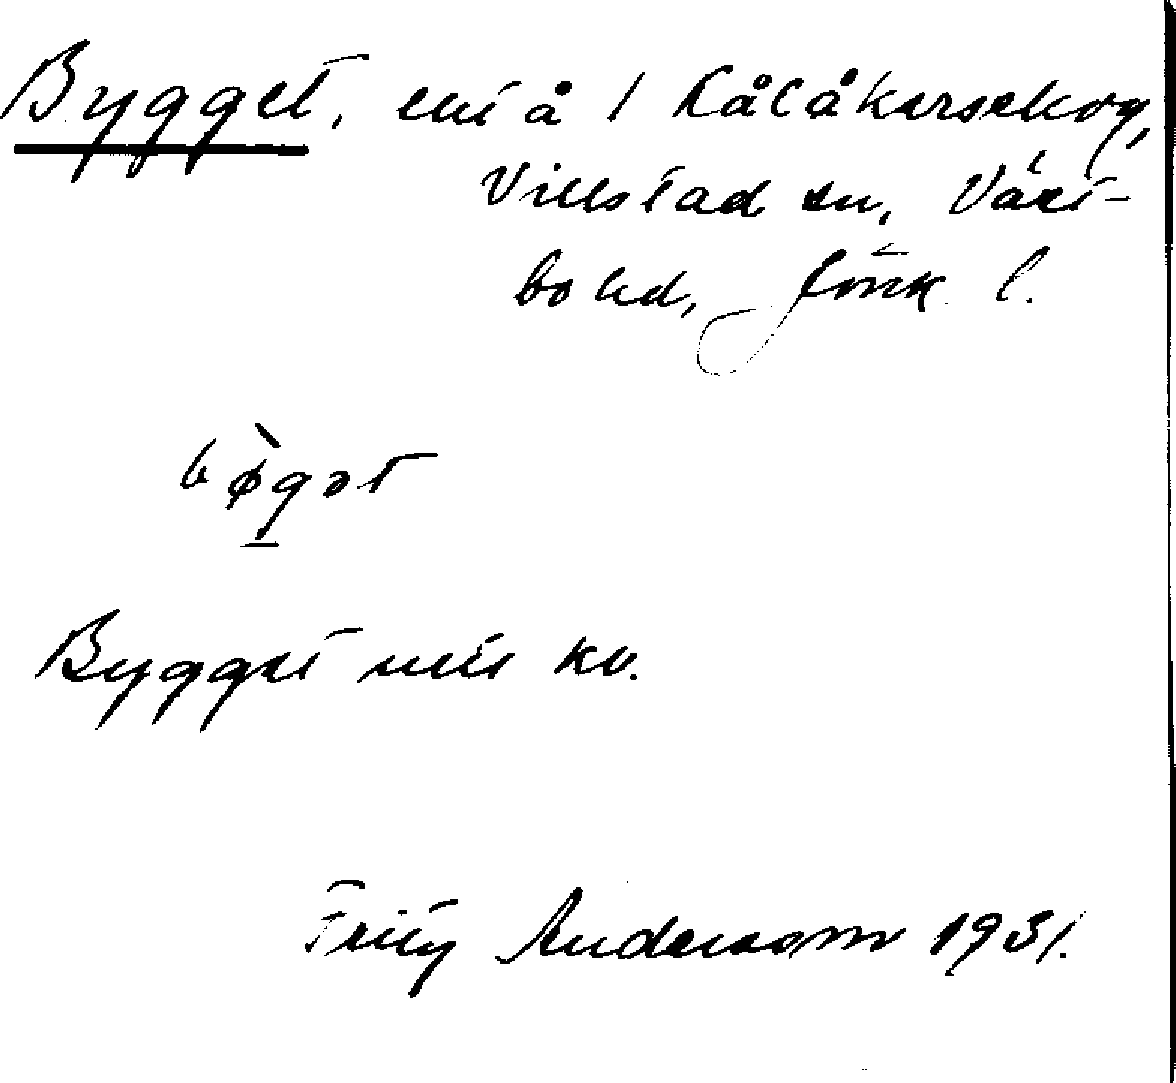 Bygget, ent å 1 Kålåkersskog,
Villstad sn, Väst-
bo hd, Jönk. l.
bø̀gət
Bygget mir kv.
Fritz Andersson 1931.